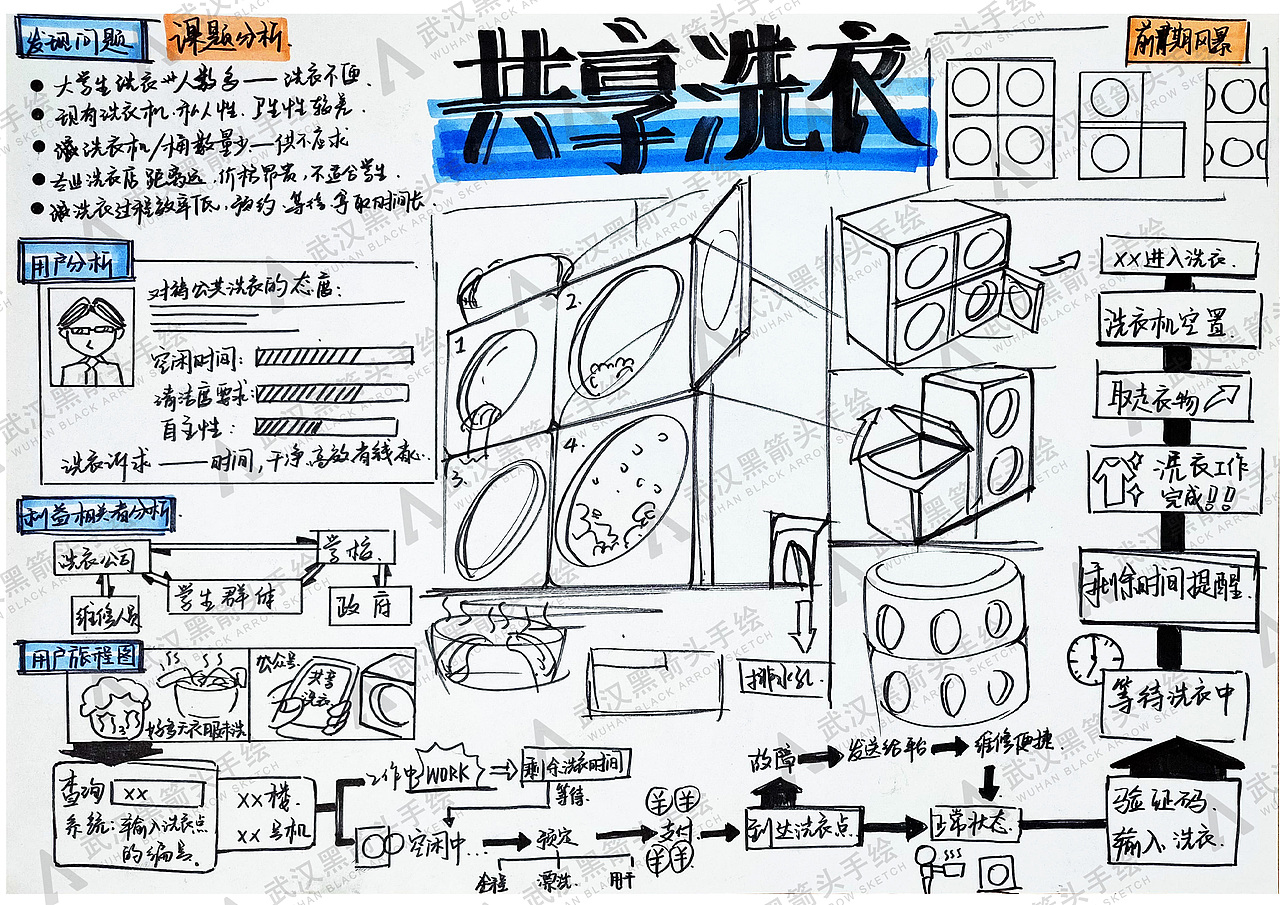 共享洗衣
发现问题
课题分析.
大学生洗衣 人数多——洗衣不便.
现有洗衣机 私人性.卫生性较差.
洗衣机/桶数量少—供不应求
专业洗衣店距离远,价格昂贵,不适合学生.
洗衣过程效率低,预约.等待 拿取时间长.
前期风暴
用户分析
对待公共洗衣的态度:
空闲时间:
清洁度要求:
自主性:
洗衣诉求——时间,干净.高效有线
利益相关者分析
洗衣公司
学校.
学生群体
维修人员
政府
用户旅程图
好多天衣服未洗
公众号.
共享
洗衣
1
2.
3.
4.
排水孔.
xx进入洗衣.
洗衣机空置.
取走衣物
洗衣工作
完成!!
剩余时间提醒.
等待洗衣中
验证码.
输入.洗衣.
查询 xx
系统:输入洗衣点
的编号.
xx楼.
xx号机
工作中 WORK
剩余洗衣时间
等待.
空闲中...
预定
全程
漂洗.
甩干
支付
到达洗衣点.
故障
发送给平台
维修便捷.
正常状态.
武汉黑箭头手绘
WUHAN BLACK ARROW SKETCH